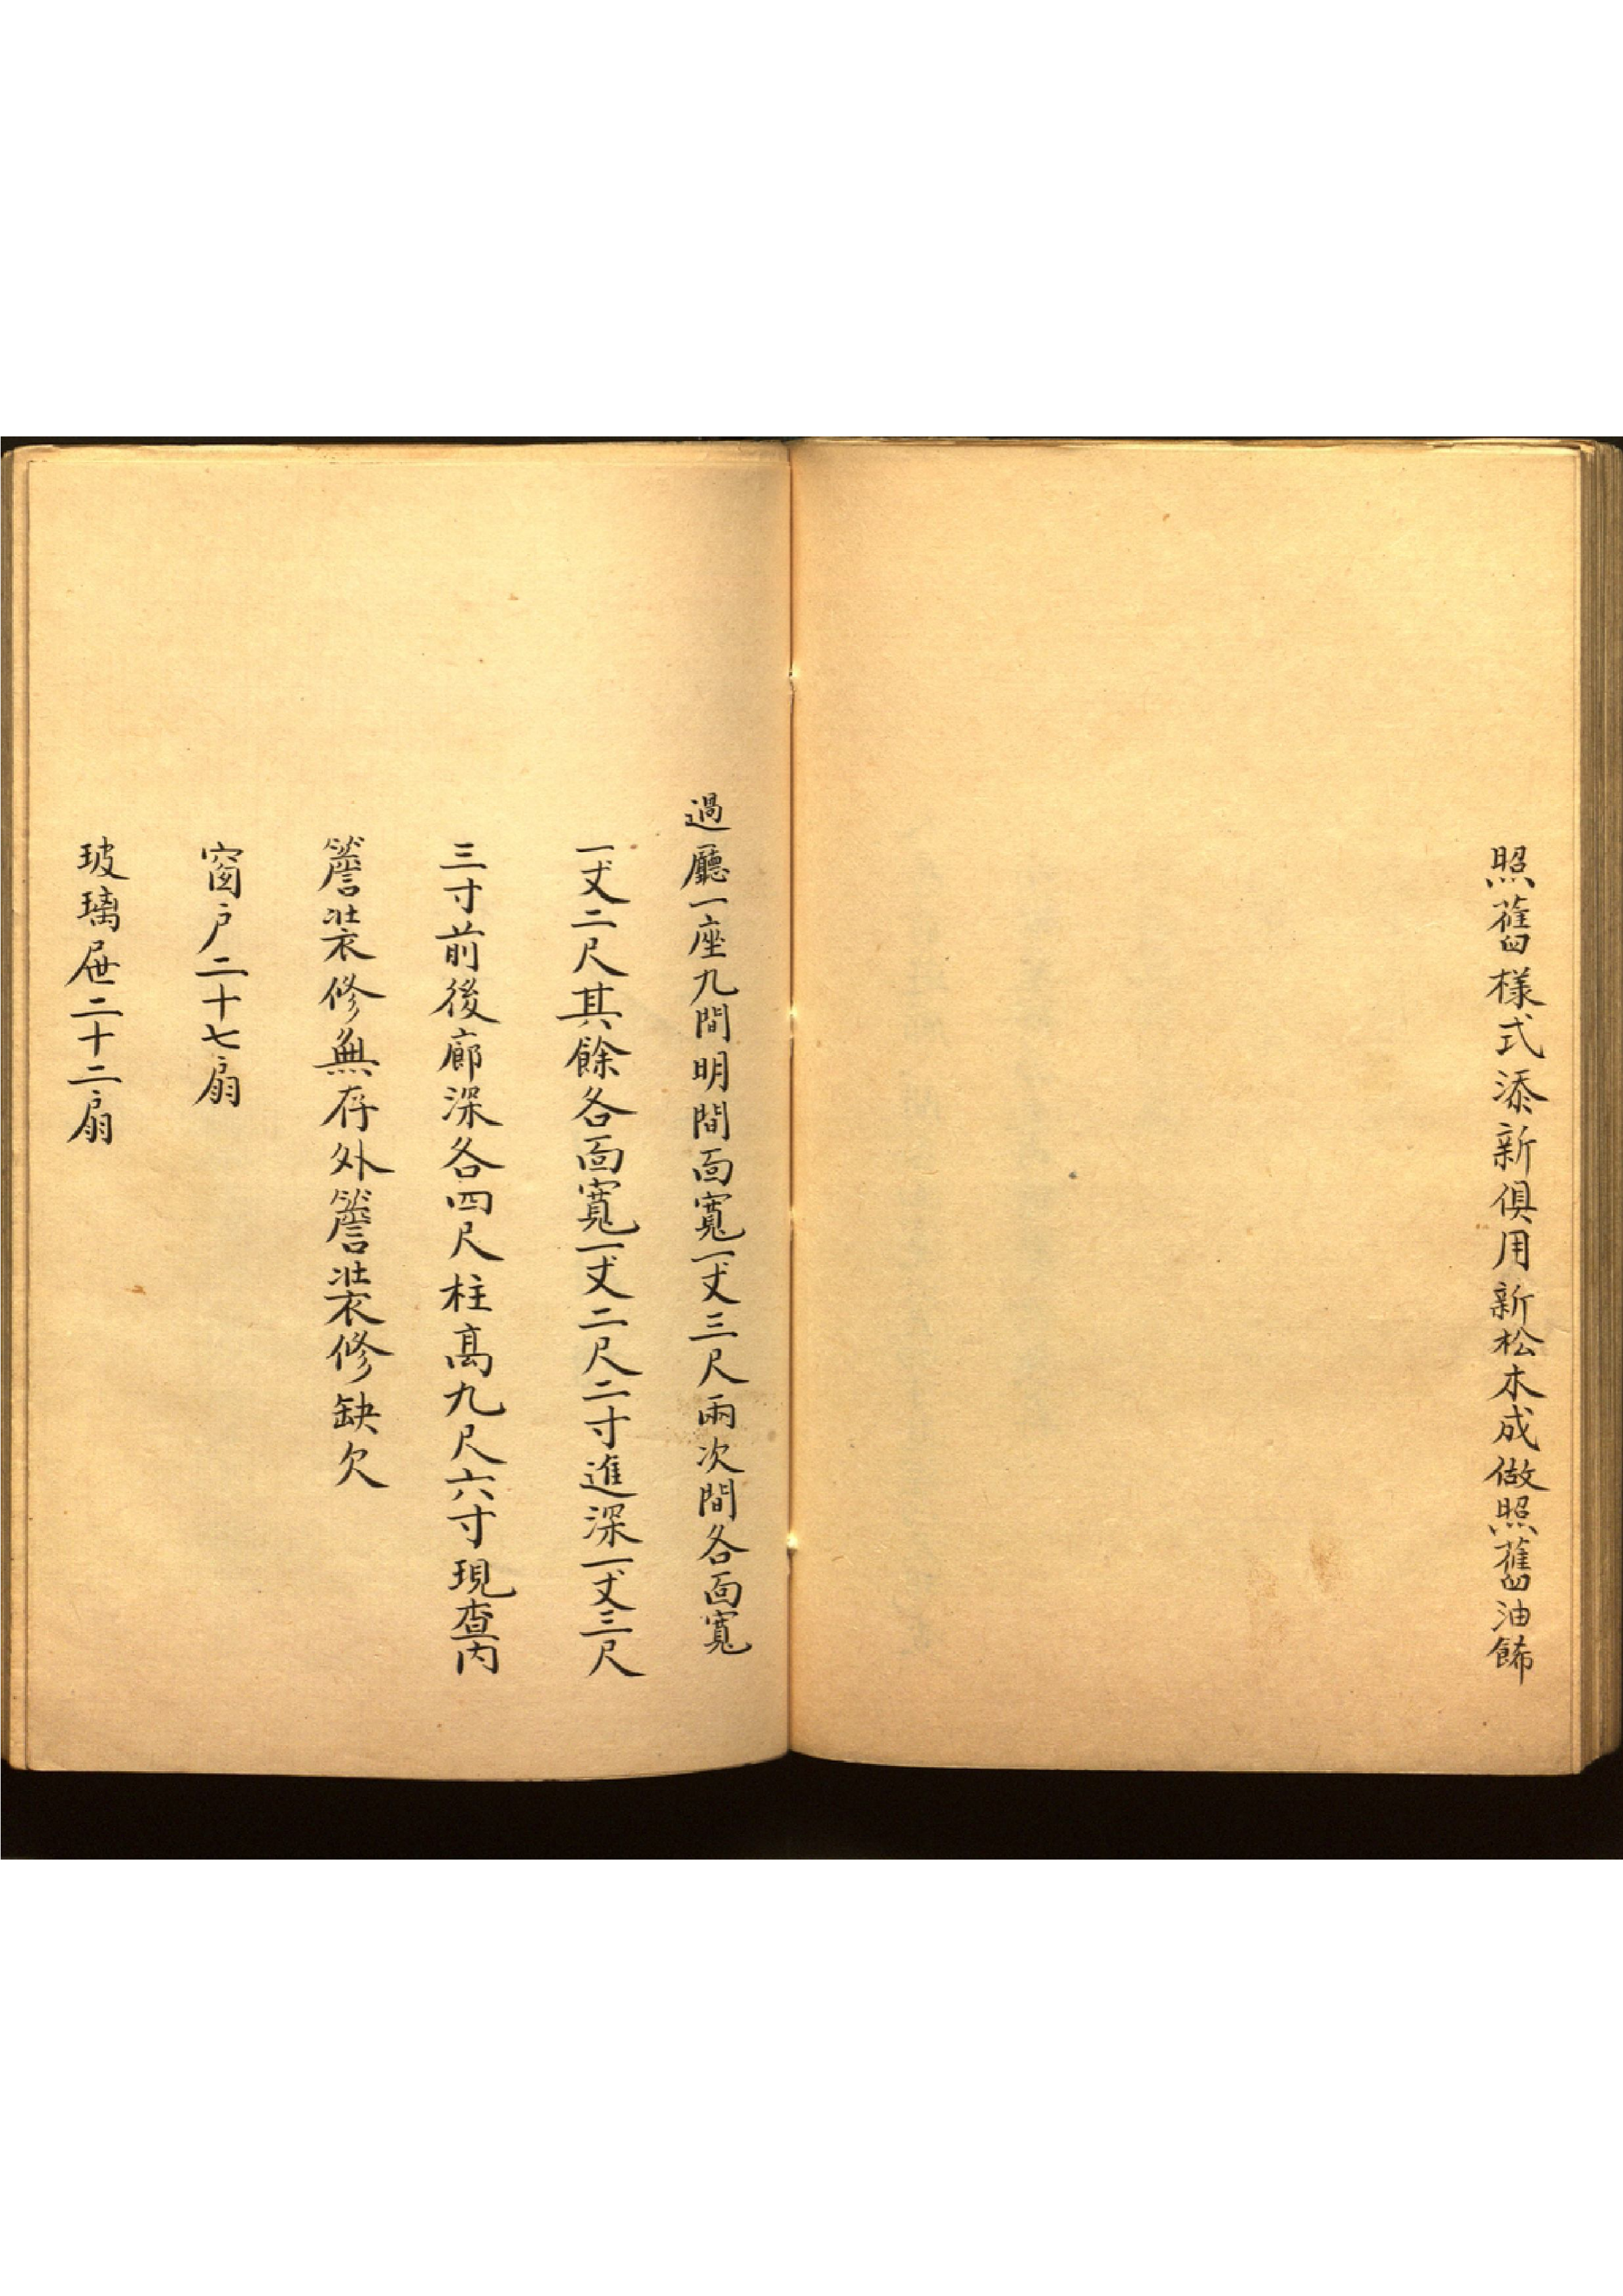 照舊樣式添新俱用新松木成做照舊油餙
過廳一座九間明間面寬一丈三尺兩次間各面寬
一丈二尺其餘各面寬一丈二尺二寸進深一丈三尺
三寸前後廊深各四尺柱高九尺六寸現查內
簷裝修無存外簷裝修缺欠
窗戶二十七扇
玻璃屉二十二扇